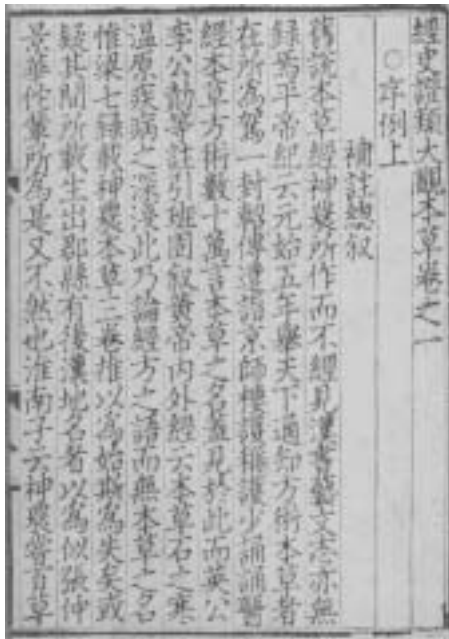 經史證類大觀本草卷之一
○序例上
補註總叙
舊説本草經神農所作而不經見漢書藝文志亦無
録焉平帝紀云元始五年舉天下通知方術本草者
在所為駕一封軺傳遣詣京師樓護傳稱護少誦醫
經本草方術數十萬言本草之名蓋見於此而英公
李公勣等註引班固叙黄帝内外經云本草石之寒
温原疾病之深淺此乃論經方之語而無本草之名
惟梁七録載神農本草三卷推以為始斯為失矣或
疑其間所載生出郡縣有後漢地名者以為似張仲
景華佗輩所為是又不然也淮南子云神農嘗百草